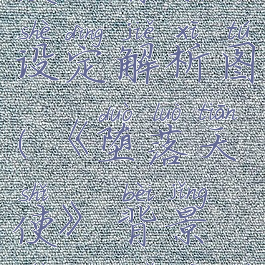 shè dìng jiě xī tú
设定解析图
duò luò tiān
(《堕落天
shǐ bèi jǐng
使》背景